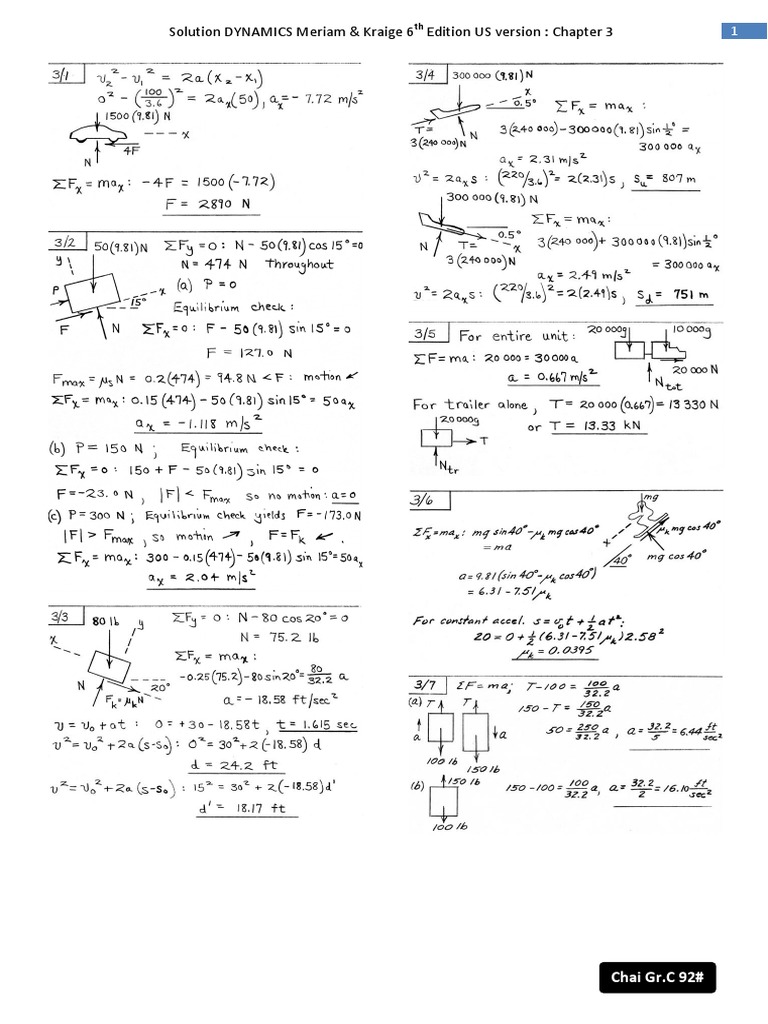 Solution DYNAMICS Meriam & Kraige 6th Edition US version : Chapter 3
1
3/1
v₂² - v₁² = 2a(x₂-x₁)
0² - (100/3.6)² = 2aₓ(50), aₓ = - 7.72 m/s²
1500(9.81) N
x
4F
N
ΣFₓ = maₓ: -4F = 1500(-7.72)
F = 2890 N
3/2
50(9.81)N
ΣFy = 0: N - 50(9.81)cos 15° = 0
N = 474 N throughout
y
x
P
15°
F
N
(a) P = 0
Equilibrium check:
ΣFₓ = 0: F - 50(9.81) sin 15° = 0
F = 127.0 N
Fmax = μsN = 0.2(474) = 94.8 N < F : motion ↙
ΣFₓ = maₓ: 0.15(474) - 50(9.81) sin 15° = 50aₓ
aₓ = -1.118 m/s²
(b) P = 150 N; Equilibrium check:
ΣFₓ = 0: 150 + F - 50(9.81) sin 15° = 0
F = -23.0 N, |F| < Fmax so no motion: a = 0
(c) P = 300 N; Equilibrium check yields F = -173.0 N
|F| > Fmax, so motion ↗, F = Fk ↙.
ΣFₓ = maₓ: 300 - 0.15(474) - 50(9.81) sin 15° = 50aₓ
aₓ = 2.04 m/s²
3/3
80 lb
y
x
N
Fk = μkN
20°
ΣFy = 0: N - 80 cos 20° = 0
N = 75.2 lb
ΣFₓ = maₓ:
-0.25(75.2) - 80 sin 20° = 80/32.2 a
a = - 18.58 ft/sec²
v = v₀ + at: 0 = +30 - 18.58t, t = 1.615 sec
v² = v₀² + 2a(s-s₀): 0² = 30² + 2(-18.58) d
d = 24.2 ft
v² = v₀² + 2a(s-s₀): 15² = 30² + 2(-18.58)d'
d' = 18.17 ft
3/4
300 000 (9.81) N
x
0.5°
T =
3(240 000) N
N
ΣFₓ = maₓ:
3(240 000) - 300 000(9.81) sin ½° =
300 000 aₓ
aₓ = 2.31 m/s²
v² = 2aₓs: (220/3.6)² = 2(2.31)s, Su = 807 m
300 000 (9.81) N
N
T =
0.5°
x
3(240 000)N
ΣFₓ = maₓ:
3(240 000) + 300 000(9.81) sin ½°
= 300 000 aₓ
aₓ = 2.49 m/s²
v² = 2aₓs: (220/3.6)² = 2(2.49)s, Sd = 751 m
3/5
For entire unit:
20 000g
10 000g
ΣF = ma: 20 000 = 30 000 a
a = 0.667 m/s²
20 000 N
Ntot
For trailer alone, T = 20 000(0.667) = 13 330 N
or T = 13.33 kN
20 000g
T
Ntr
3/6
mg
μk mg cos 40°
x
40°
mg cos 40°
ΣFₓ = maₓ: mg sin 40° - μk mg cos 40°
= ma
a = 9.81(sin 40° - μk cos 40°)
= 6.31 - 7.51μk
For constant accel. s = v₀t + ½at²:
20 = 0 + ½(6.31 - 7.51μk)2.58²
μk = 0.0395
3/7
ΣF = ma; T - 100 = 100/32.2 a
(a) T T
150 - T = 150/32.2 a
a
a
50 = 250/32.2 a, a = 32.2/5 = 6.44 ft/sec²
100 lb
150 lb
(b)
150 lb
150 - 100 = 100/32.2 a, a = 32.2/2 = 16.10 ft/sec²
100 lb
Chai Gr.C 92#